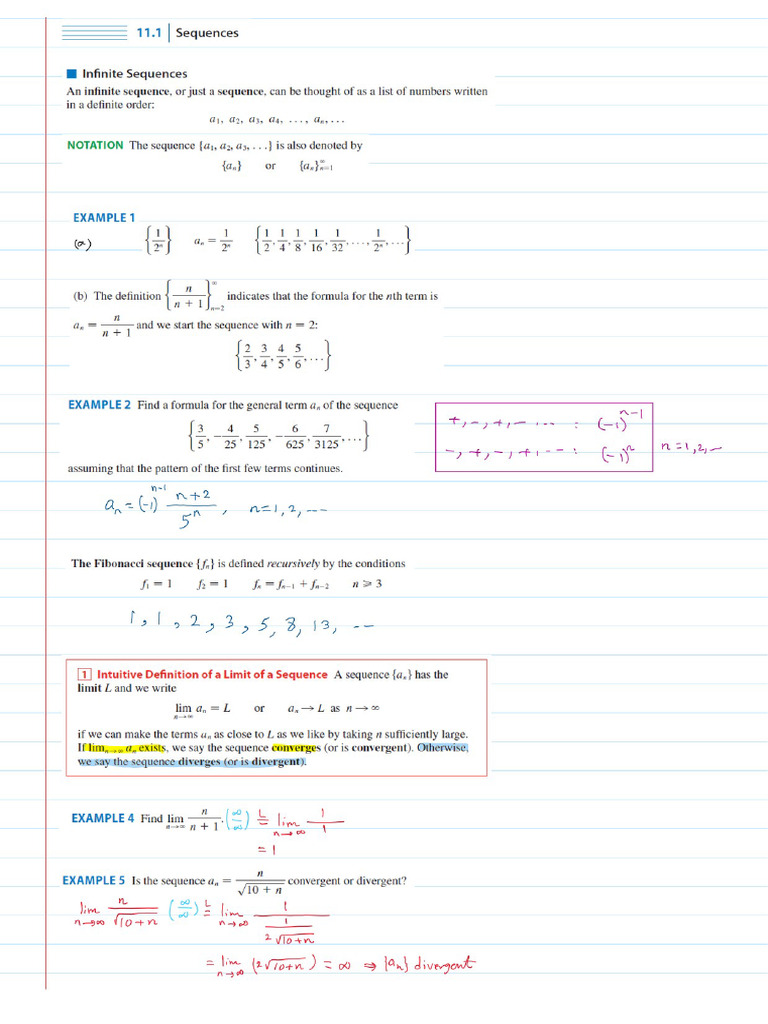 11.1 Sequences
■ Infinite Sequences
An infinite sequence, or just a sequence, can be thought of as a list of numbers written
in a definite order:
a₁, a₂, a₃, a₄, . . . , aₙ, . . .
NOTATION The sequence {a₁, a₂, a₃, . . .} is also denoted by
{aₙ} or {aₙ}ₙ₌₁^∞
EXAMPLE 1
(a) {1/2ⁿ} aₙ = 1/2ⁿ {1/2, 1/4, 1/8, 1/16, 1/32, . . . , 1/2ⁿ, . . .}
(b) The definition {n/(n + 1)}ₙ₌₂^∞ indicates that the formula for the nth term is
aₙ = n/(n + 1) and we start the sequence with n = 2:
{2/3, 3/4, 4/5, 5/6, . . .}
EXAMPLE 2 Find a formula for the general term aₙ of the sequence
{3/5, −4/25, 5/125, −6/625, 7/3125, . . .}
assuming that the pattern of the first few terms continues.
+, −, +, − ... : (−1)ⁿ⁻¹
−, +, −, +, ... : (−1)ⁿ n=1,2,...
aₙ = (−1)ⁿ⁻¹ (n+2)/5ⁿ, n=1,2,...
The Fibonacci sequence {fₙ} is defined recursively by the conditions
f₁ = 1 f₂ = 1 fₙ = fₙ₋₁ + fₙ₋₂ n ⩾ 3
1, 1, 2, 3, 5, 8, 13, ...
1 Intuitive Definition of a Limit of a Sequence A sequence {aₙ} has the
limit L and we write
lim n→∞ aₙ = L or aₙ → L as n → ∞
if we can make the terms aₙ as close to L as we like by taking n sufficiently large.
If limₙ→∞ aₙ exists, we say the sequence converges (or is convergent). Otherwise,
we say the sequence diverges (or is divergent).
EXAMPLE 4 Find lim n→∞ n/(n + 1). (∞/∞) L= lim n→∞ 1/1
= 1
EXAMPLE 5 Is the sequence aₙ = n/√(10 + n) convergent or divergent?
lim n→∞ n/√(10+n) (∞/∞) L= lim n→∞ 1/(1/(2√(10+n)))
= lim n→∞ (2√(10+n)) = ∞ ⇒ {aₙ} divergent